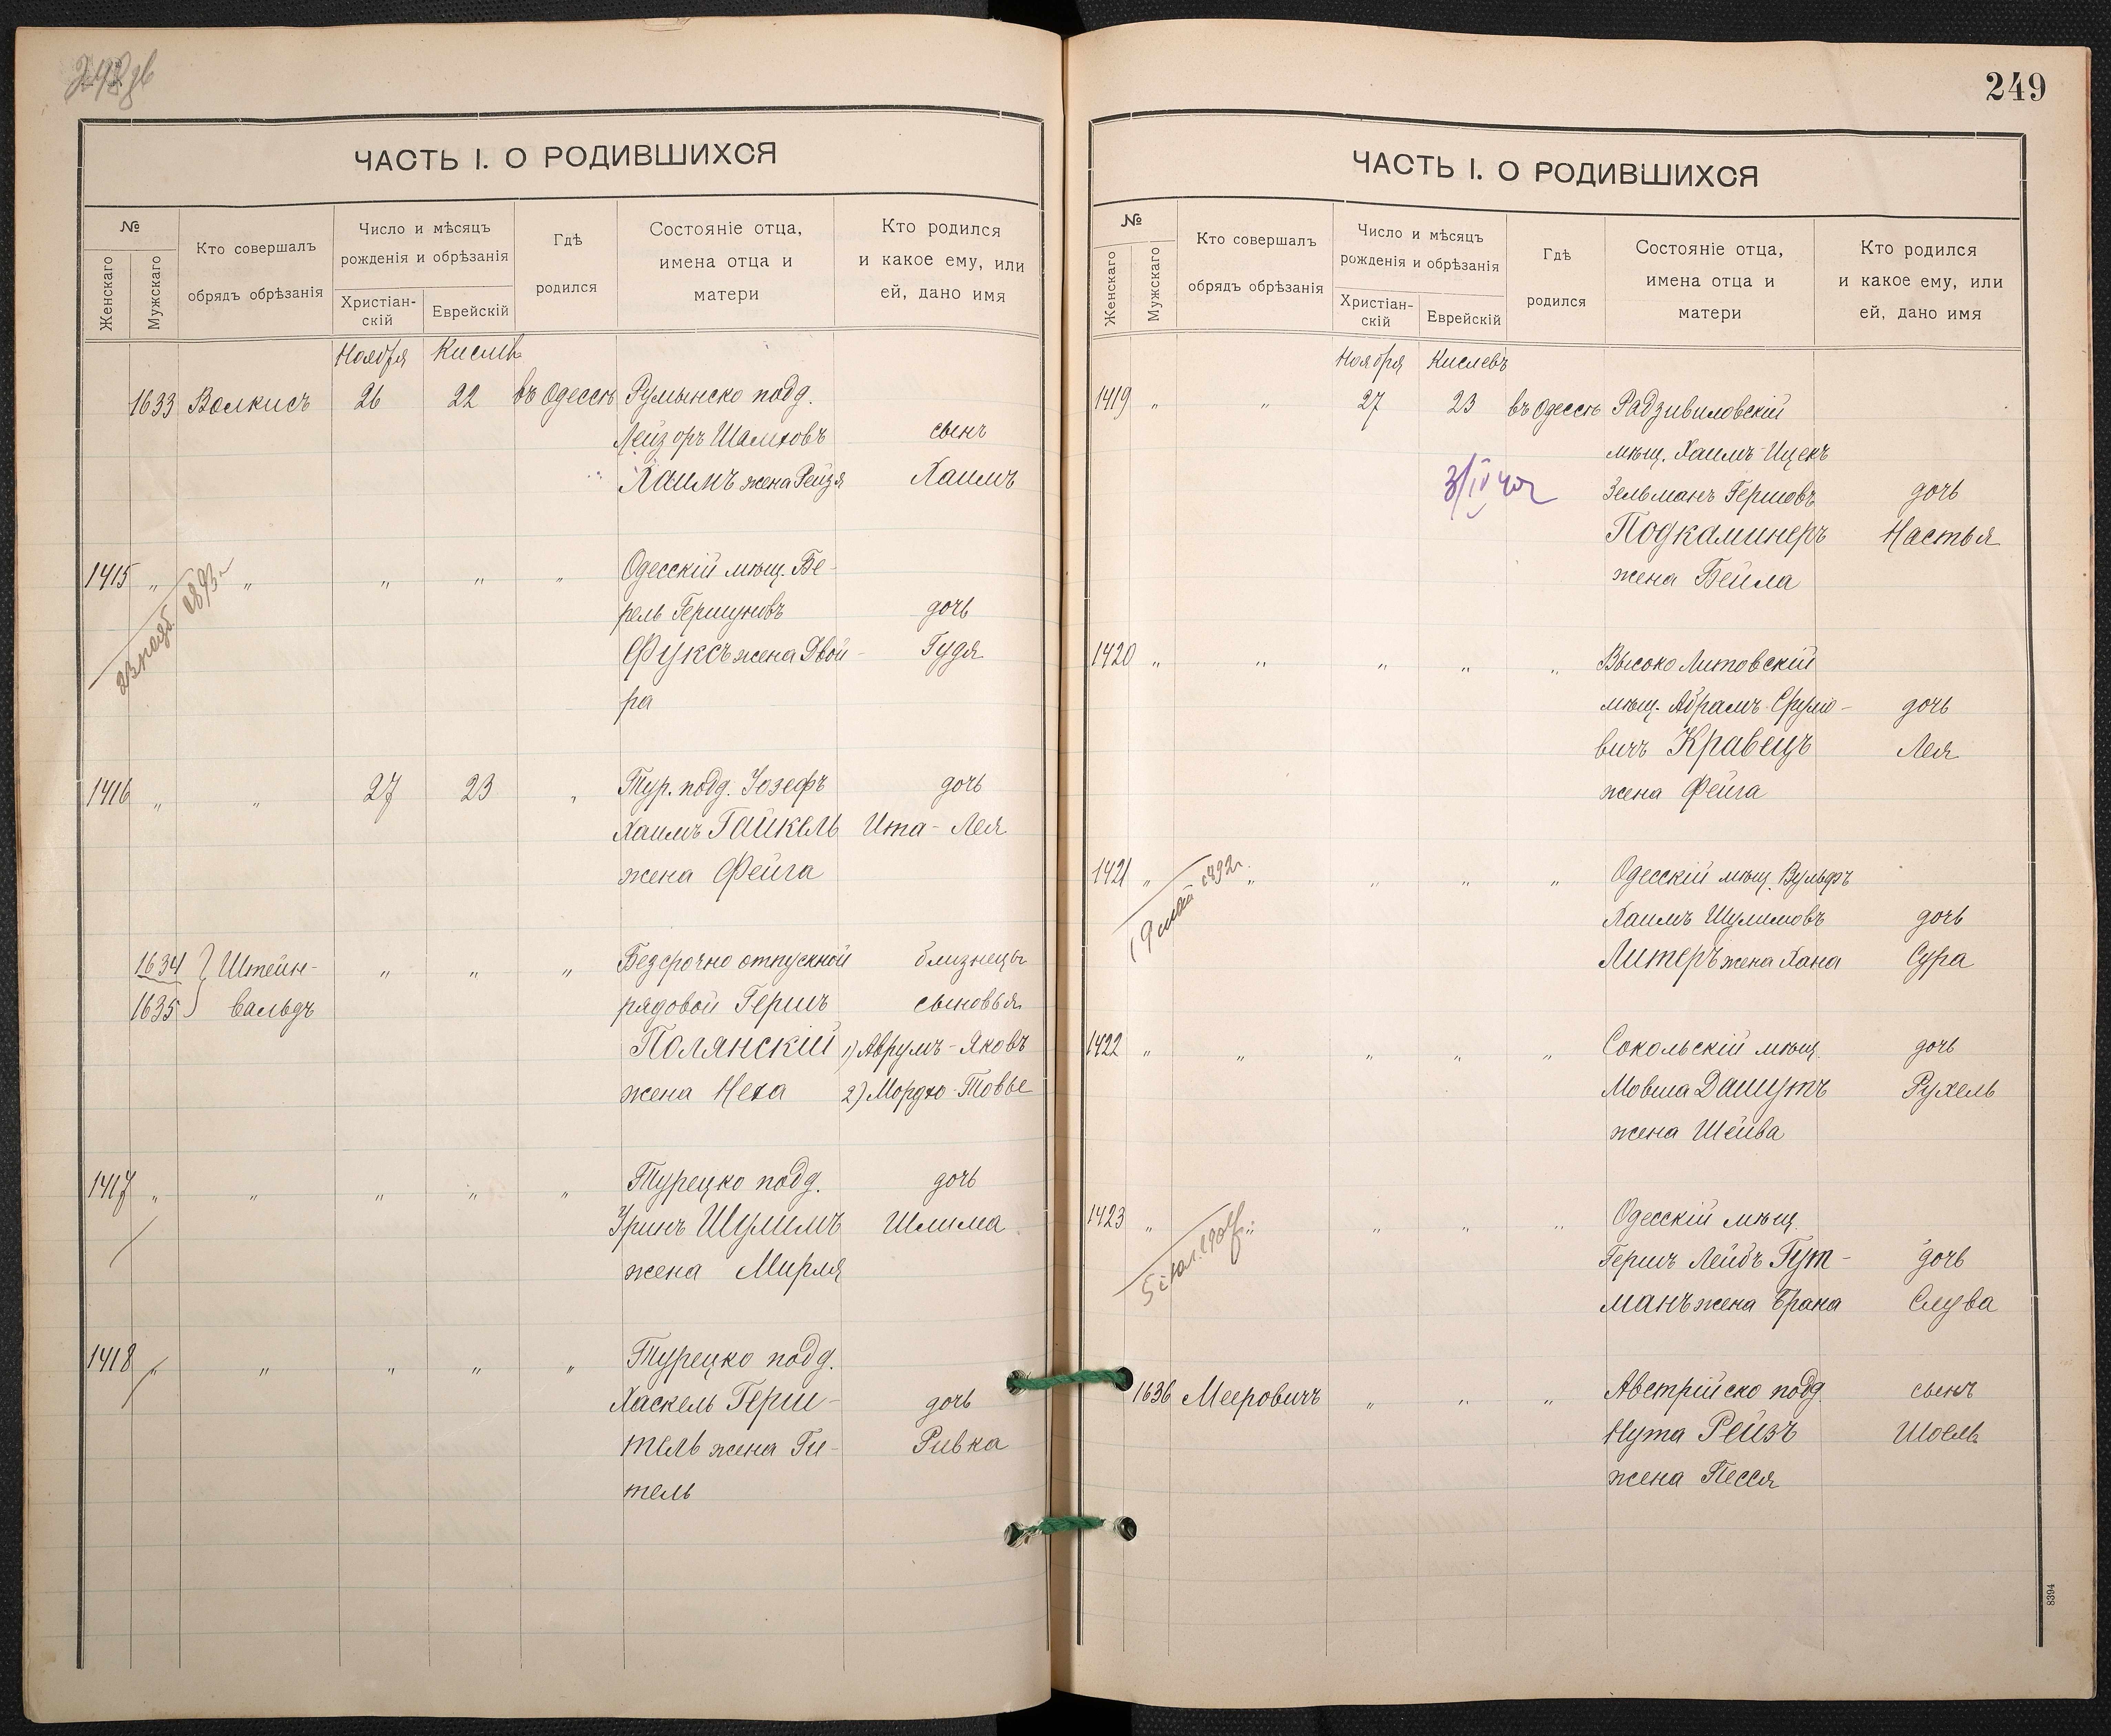 ЧАСТЬ I. О РОДИВШИХСЯ
№
Женскаго
Мужскаго
Кто совершалъ
обрядъ обрѣзанія
Число и мѣсяцъ
рожденія и обрѣзанія
Христіан-
скій
Еврейскій
Гдѣ
родился
Состояніе отца,
имена отца и
матери
Кто родился
и какое ему, или
ей, дано имя
Ноября Кислевъ
1633 Волкисъ 26 22 въ Одессѣ Румынско подд.
Лейзоръ Шалиховъ сынъ
Хаимъ жена Рейзя Хаимъ
1415 " " " " " Одесскій мѣщ. Бе-
рель Гершуновъ дочь
Фуксъ жена Двой- Гудя
ра
1893 г.
1416 " " 27 23 " Тур. подд. Іозефъ дочь
Хаимъ Гайкель Ита-Лея
жена Фейга
1634 } Штейн- " " " Безсрочно отпускной близнецы
1635 } вальдъ рядовой Гершъ сыновья
Полянскій 1) Аврумъ-Яковъ
жена Неха 2) Мордко-Товье
1417 " " " " " Турецко подд. дочь
Шулимъ Шлима
жена Мирля
1418 " " " " " Турецко подд.
Хаскель Герш- дочь
тель жена Ги- Ривка
тель
249
ЧАСТЬ I. О РОДИВШИХСЯ
№
Женскаго
Мужскаго
Кто совершалъ
обрядъ обрѣзанія
Число и мѣсяцъ
рожденія и обрѣзанія
Христіан-
скій
Еврейскій
Гдѣ
родился
Состояніе отца,
имена отца и
матери
Кто родился
и какое ему, или
ей, дано имя
Ноября Кислевъ
1419 " " 27 23 въ Одессѣ Радзивиловскій
мѣщ. Хаимъ-Ицекъ
Зельманъ Гершовъ дочь
Подкаминеръ Настья
жена Бейла
1420 " " " " " Высоко Литовскій
мѣщ. Абрамъ Сруло- дочь
вичъ Кравецъ Лея
жена Фейга
1421 " " " " " Одесскій мѣщ. Вульфъ
Хаимъ Шулимовъ дочь
Литеръ жена Хана Сура
19 мая 1892 г.
1422 " " " " " Сокольскій мѣщ. дочь
Мовша Дашутъ Рухель
жена Шейва
1423 " " " " " Одесскій мѣщ.
Гершъ Лейбъ Гут- дочь
манъ жена Брана Слува
1636 Мееровичъ " " " Австрійско подд. сынъ
Нута Рейзъ Шоель
жена Песся
8394